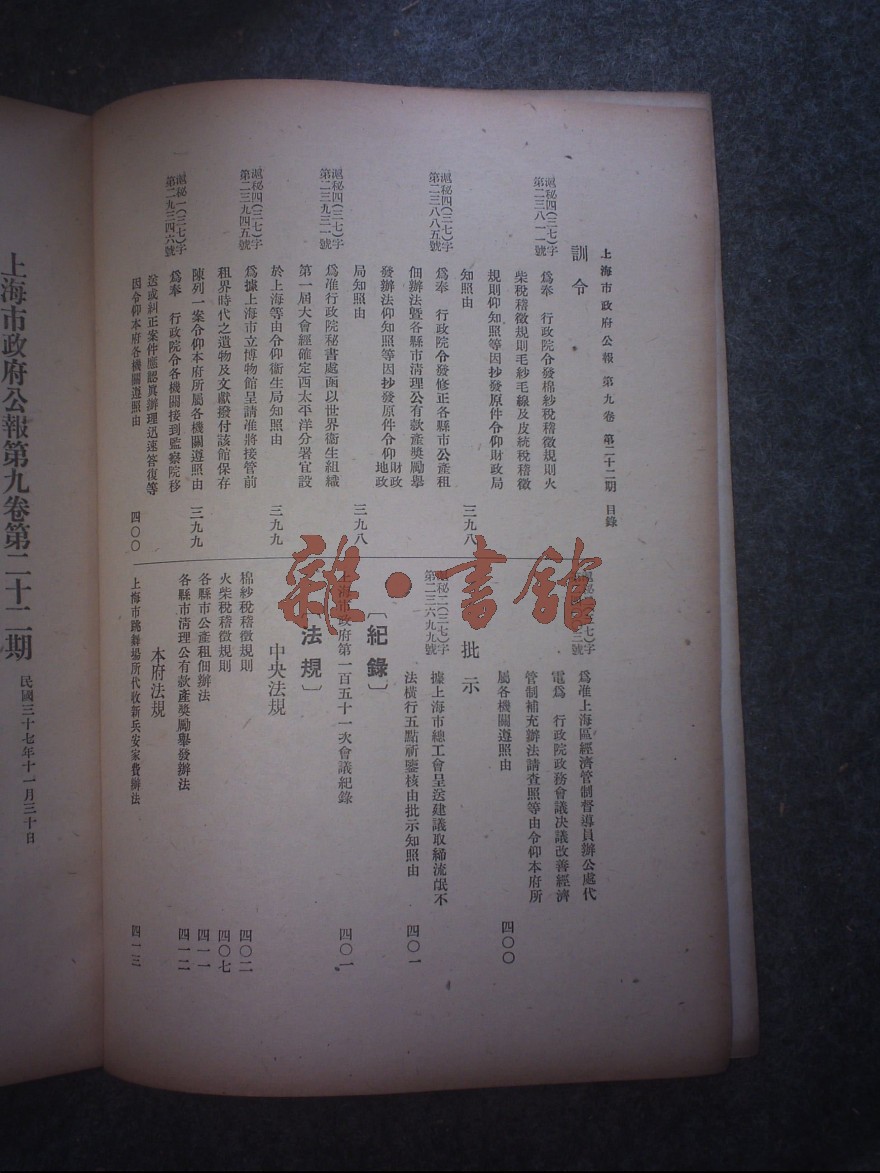 上海市政府公報 第九卷 第二十二期 目錄
訓令
滬秘四(三七)字
第二三八一一號
為奉 行政院令發棉紗稅稽徵規則火
柴稅稽徵規則毛紗毛線及皮統稅稽徵
規則仰知照等因抄發原件令仰財政局
知照由
三九八
滬秘四(三七)字
第二三八八五號
為奉 行政院令發修正各縣市公產租
佃辦法暨各縣市清理公有款產獎勵舉
發辦法仰知照等因抄發原件令仰財政地政
局知照由
三九八
滬秘四(三七)字
第二三九三一號
為准行政院秘書處函以世界衞生組織
第一屆大會經確定西太平洋分署官設
於上海等由令仰衞生局知照由
三九九
滬秘四(三七)字
第二三九四五號
為據上海市立博物館呈請准將接管前
租界時代之遺物及文獻撥付該館保存
陳列一案令仰本府所屬各機關遵照由
三九九
滬秘一(三七)字
第二九三四六號
為奉 行政院令各機關接到監察院移
送或糾正案件應認眞辦理迅速答復等
因令仰本府各機關遵照由
四〇〇
為准上海區經濟管制督導員辦公處代
電為 行政院政務會議決議改善經濟
管制補充辦法請查照等由令仰本府所
屬各機關遵照由
四〇〇
批示
滬秘二(三七)字
第二三六九九號
據上海市總工會呈送建議取締流氓不
法橫行五點祈鑒核由批示知照由
四〇一
〔紀錄〕
上海市政府第一百五十一次會議紀錄
四〇一
〔法規〕
中央法規
棉紗稅稽徵規則
四〇二
火柴稅稽徵規則
四〇七
各縣市公產租佃辦法
四一一
各縣市清理公有款產獎勵舉發辦法
四一二
本府法規
上海市跳舞場所代收新兵安家費辦法
四一三
上海市政府公報第九卷第二十二期
民國三十七年十一月三十日
雜·書館